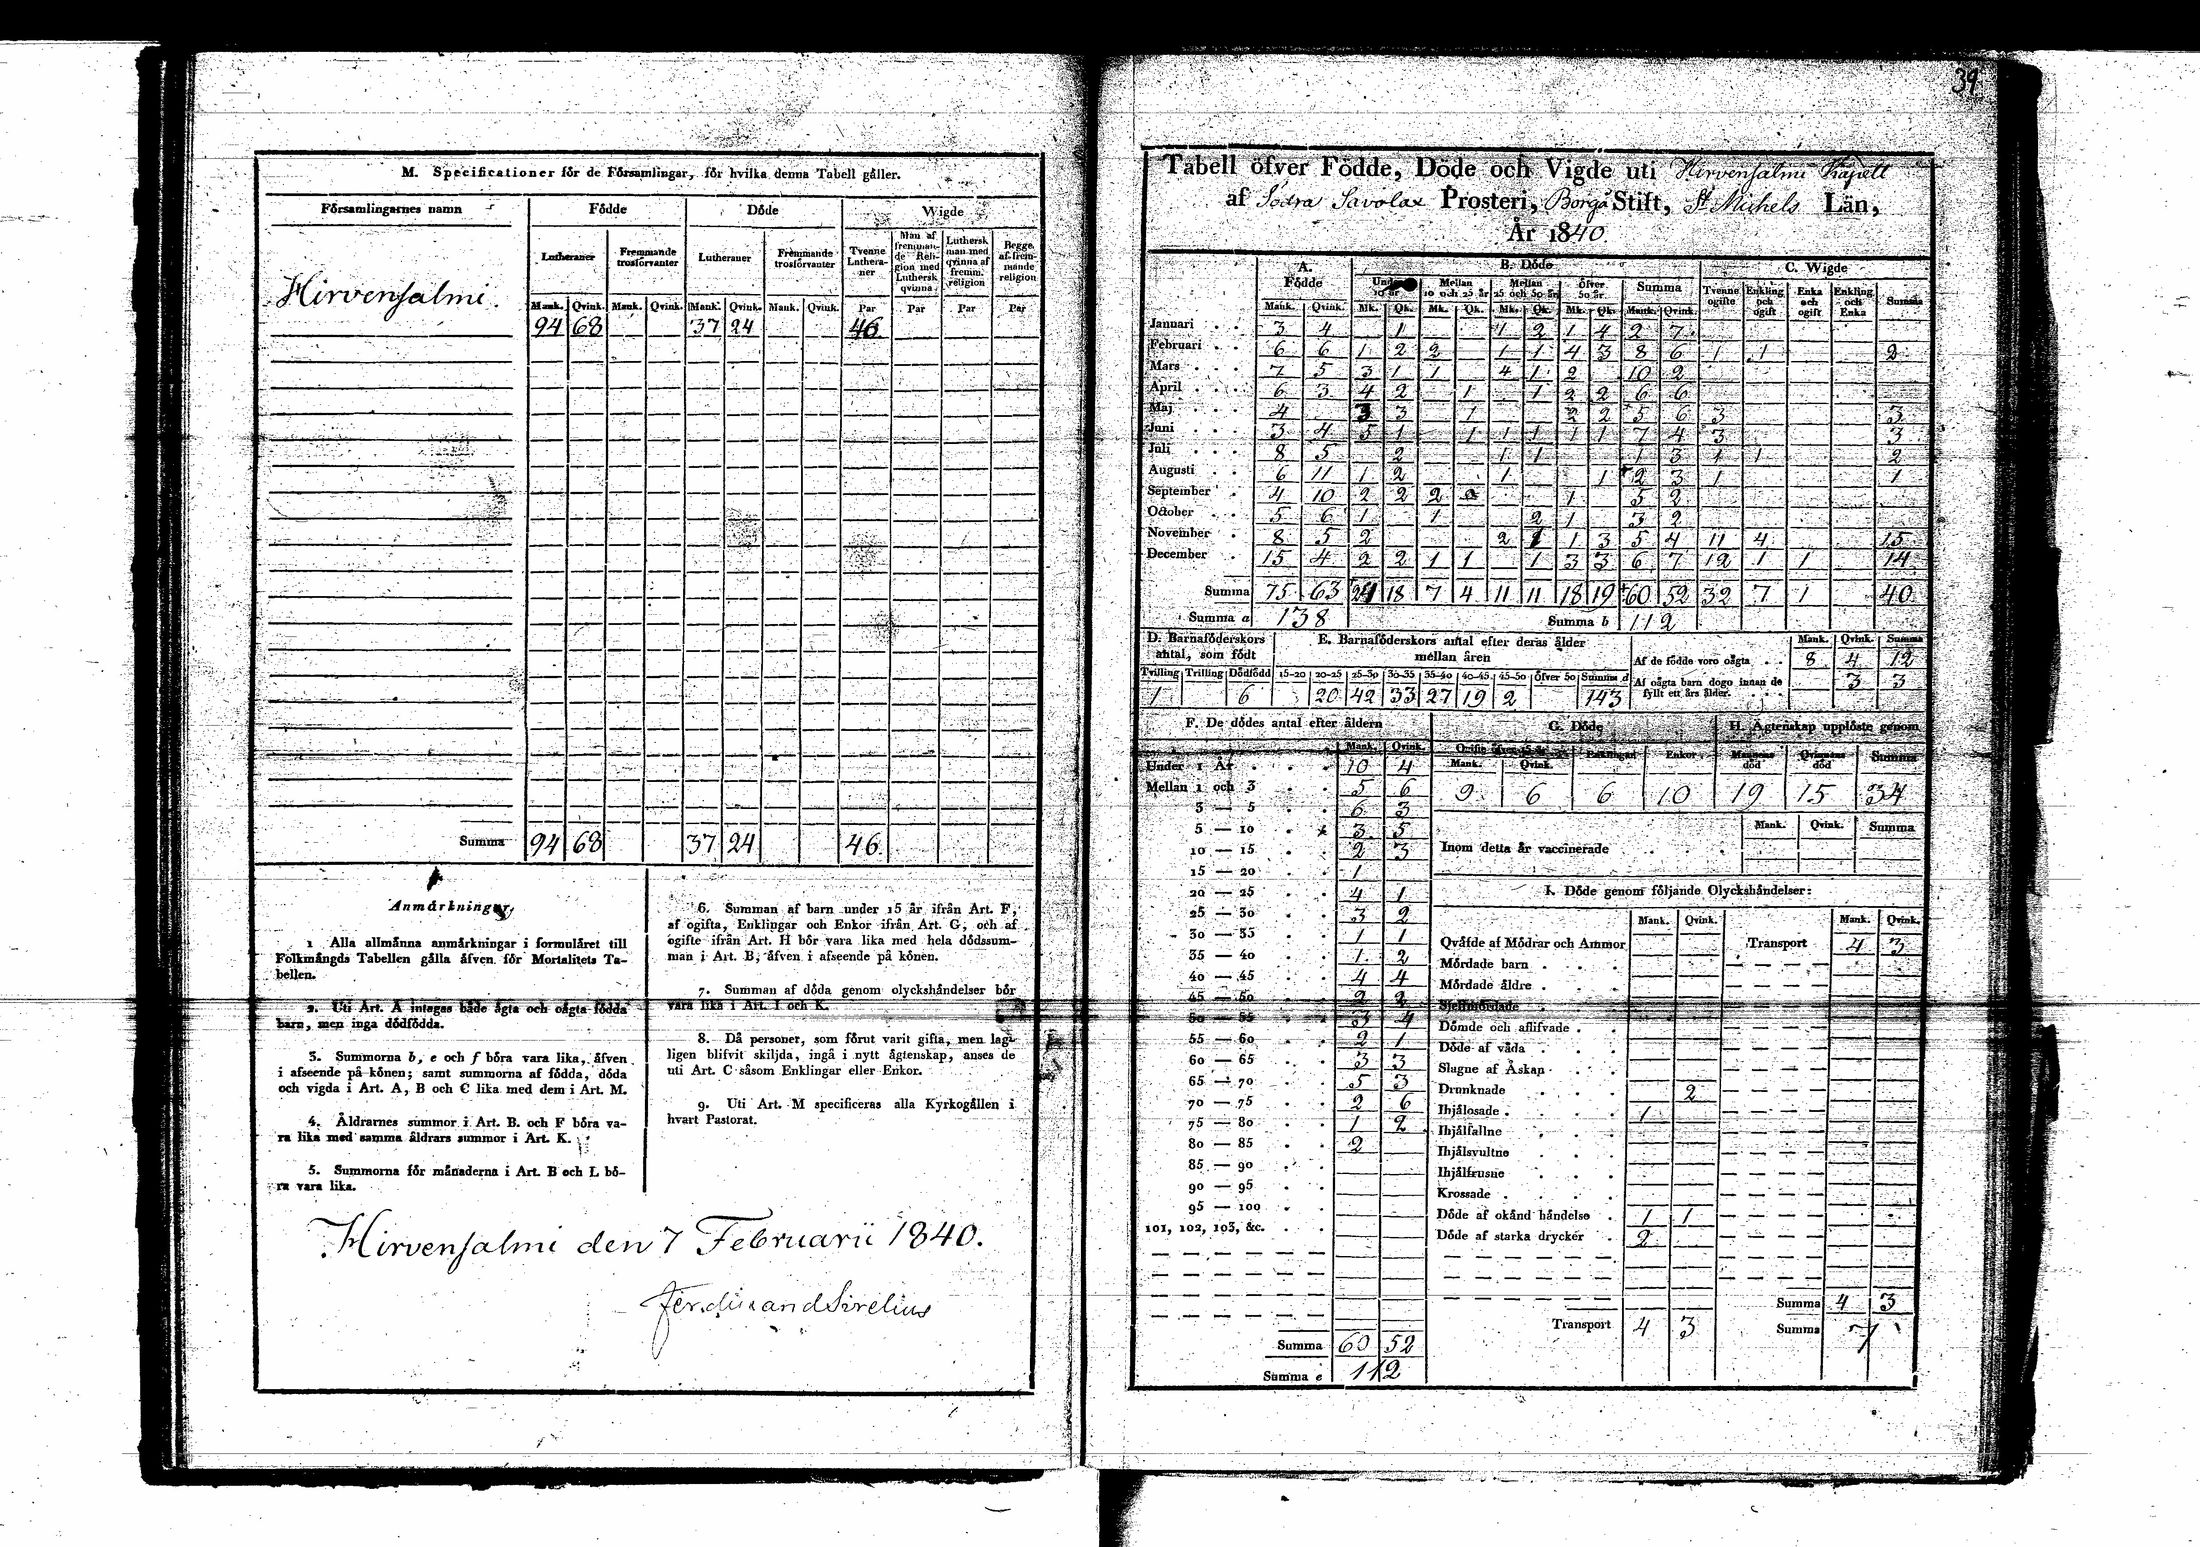 M. Specificationer för de Församlingar, för hvilka denna Tabell gäller.
Församlingarnes namn Födde Döde Wigde
Lutheraner Fremmande trosförvanter Lutheraner Fremmande trosförvanter Tvenne Lutheraner Man af fremmande Religion med Luthersk qvinna Luthersk man med qvinna af fremm. religion Begge af fremmande religion
Mank. Qvink. Mank. Qvink. Mank. Qvink. Mank. Qvink. Par Par Par Par
Hirvensalmi 94 68 37 24 46
Summa 94 68 37 24 46
Anmärkningar.
1 Alla allmänna anmärkningar i formuläret till
Folkmängds Tabellen gälla äfven för Mortalitets Ta-
bellen.
2. Uti Art. A intagas både ägta och oägta födda
barn, men inga dödfödda.
3. Summorna b, e och f böra vara lika, äfven
i afseende på könen; samt summorna af födda, döda
och vigda i Art. A, B och C lika med dem i Art. M.
4. Åldrarnes summor i Art. B. och F böra va-
ra lika med samma åldrars summor i Art. K.
5. Summorna för månaderna i Art. B och L bö-
ra vara lika.
6. Summan af barn under 15 år ifrån Art. F,
af ogifta, Enklingar och Enkor ifrån Art. G, och af
ogifte ifrån Art. H bör vara lika med hela dödssum-
man i Art. B, äfven i afseende på könen.
7. Summan af döda genom olyckshändelser bör
vara lika i Art. I och K.
8. Då personer, som förut varit gifta, men lag-
ligen blifvit skiljda, ingå i nytt ägtenskap, anses de
uti Art. C såsom Enklingar eller Enkor.
9. Uti Art. M specificeras alla Kyrkogällen i
hvart Pastorat.
Hirvensalmi den 7 Februarii 1840.
Ferdinand Sirelius
39.
Tabell öfver Födde, Döde och Vigde uti Hirvensalmi Kapell
af Södra Savolax Prosteri, Borgå Stift, St Michels Län,
År 1840
A. Födde B. Döde C. Wigde
Under 10 år Mellan 10 och 25 år Mellan 25 och 50 år Öfver 50 år Summa Tvenne ogifte Enkling och ogift Enka och ogift Enkling och Enka Summa
Mank. Qvink. Mk. Qk. Mk. Qk. Mk. Qk. Mk. Qk. Mank. Qvink.
Januari 3 4 1 1 2 1 4 2 7
Februari 6 6 1 2 2 1 1 4 3 8 6 1 1 2
Mars 7 5 3 1 1 4 1 2 10 2
April 6 3 4 2 1 1 2 2 6 6
Maj 4 3 3 1 2 2 5 6 3 3
Juni 3 4 5 1 1 1 1 1 1 7 4 3 3
Juli 8 5 2 1 1 1 3 1 1 2
Augusti 6 11 1 2 1 1 2 3 1 1
September 4 10 2 2 2 1 5 2
October 5 6 1 1 2 1 3 2
November 8 5 2 2 1 1 3 5 4 11 4 15
December 15 4 2 2 1 1 1 3 3 6 7 12 1 1 14
Summa 75 63 24 18 7 4 11 11 18 19 60 52 32 7 1 40
Summa a 138 Summa b 112
D. Barnaföderskors antal, som födt
Tvilling Trilling Dödfödd
1 6
E. Barnaföderskors antal efter deras ålder mellan åren
15-20 20-25 25-30 30-35 35-40 40-45 45-50 Öfver 50 Summa d
20 42 33 27 19 2 143
Mank. Qvink. Summa
Af de födde voro oägta 8 4 12
Af oägta barn dogo innan de fyllt ett års ålder. 3 3
F. De dödes antal efter åldern
Mank. Qvink.
Under 1 År 10 4
Mellan 1 och 3 5 6
3 — 5 6 3
5 — 10 3 5
10 — 15 2 3
15 — 20 1
20 — 25 4 1
25 — 30 3 2
30 — 35 1 1
35 — 40 1 2
40 — 45 4 4
45 — 50 2 2
50 — 55 3 4
55 — 60 2 1
60 — 65 3 3
65 — 70 5 3
70 — 75 2 6
75 — 80 1 2
80 — 85 2
85 — 90
90 — 95
95 — 100
101, 102, 103, &c.
Summa 60 52
Summa e 112
G. Döde
Ogifte öfver 15 år Enklingar Enkor
Mank. Qvink.
9 6 6 10
H. Ägtenskap upplöste genom
Mannens död Qvinnans död Summa
19 15 34
Mank. Qvink. Summa
Inom detta år vaccinerade
I. Döde genom följande Olyckshändelser:
Mank. Qvink. Mank. Qvink.
Qväfde af Mödrar och Ammor Transport 4 3
Mördade barn
Mördade äldre
Sjelfmördade
Dömde och aflifvade
Döde af våda
Slagne af Åskan
Drunknade 2
Ihjälosade 1
Ihjälfallne
Ihjälsvultne
Ihjälfrusne
Krossade
Döde af okänd händelse 1 1
Döde af starka drycker 2
Summa 4 3
Transport 4 3 Summa 7